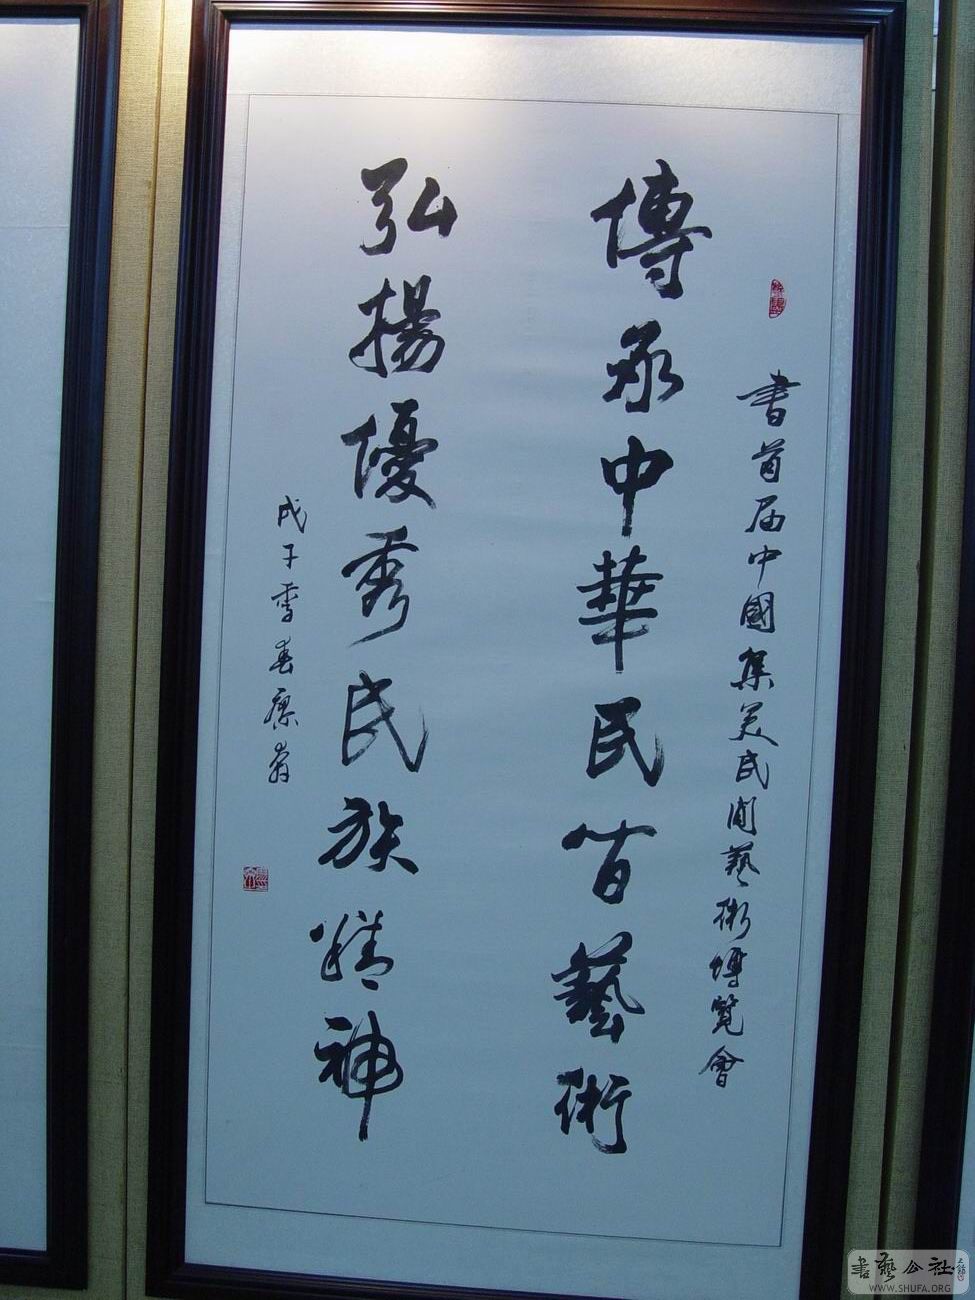 書首届中國集美民間藝術博覽會
傳承中華民間藝術
弘揚優秀民族精神
戊子季春
書藝公社
WWW.SHUFA.ORG